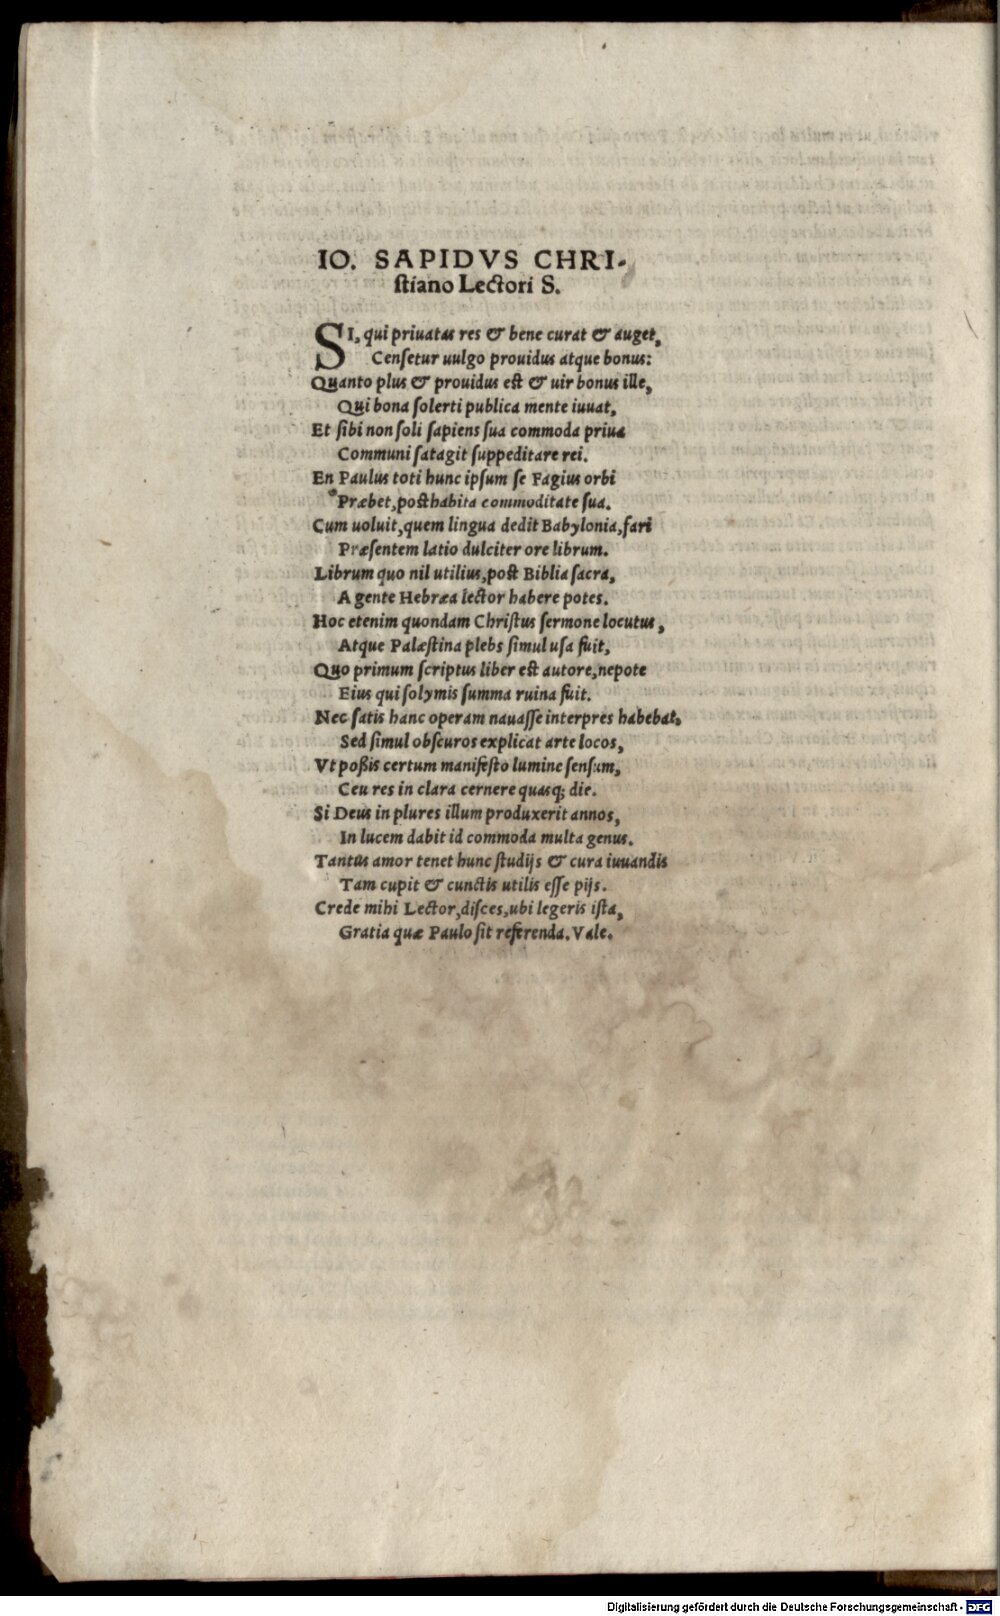 IO. SAPIDVS CHRI-
stiano Lectori S.
SI, qui priuatas res & bene curat & auget,
Censetur uulgo prouidus atque bonus:
Quanto plus & prouidus est & uir bonus ille,
Qui bona solerti publica mente iuuat,
Et sibi non soli sapiens sua commoda priua
Communi satagit suppeditare rei.
En Paulus toti hunc ipsum se Fagius orbi
Præbet, posthabita commoditate sua.
Cum uoluit, quem lingua dedit Babylonia, fari
Præsentem latio dulciter ore librum.
Librum quo nil utilius, post Biblia sacra,
A gente Hebræa lector habere potes.
Hoc etenim quondam Christus sermone locutus,
Atque Palæstina plebs simul usa fuit,
Quo primum scriptus liber est autore, nepote
Eius qui solymis summa ruina fuit.
Nec satis hanc operam nauasse interpres habebat,
Sed simul obscuros explicat arte locos,
Vt poßis certum manifesto lumine sensum,
Ceu res in clara cernere quasq; die.
Si Deus in plures illum produxerit annos,
In lucem dabit id commoda multa genus.
Tantus amor tenet hunc studijs & cura iuuandis
Tam cupit & cunctis utilis esse pijs.
Crede mihi Lector, disces, ubi legeris ista,
Gratia quæ Paulo sit referenda. Vale.
Digitalisierung gefördert durch die Deutsche Forschungsgemeinschaft - DFG